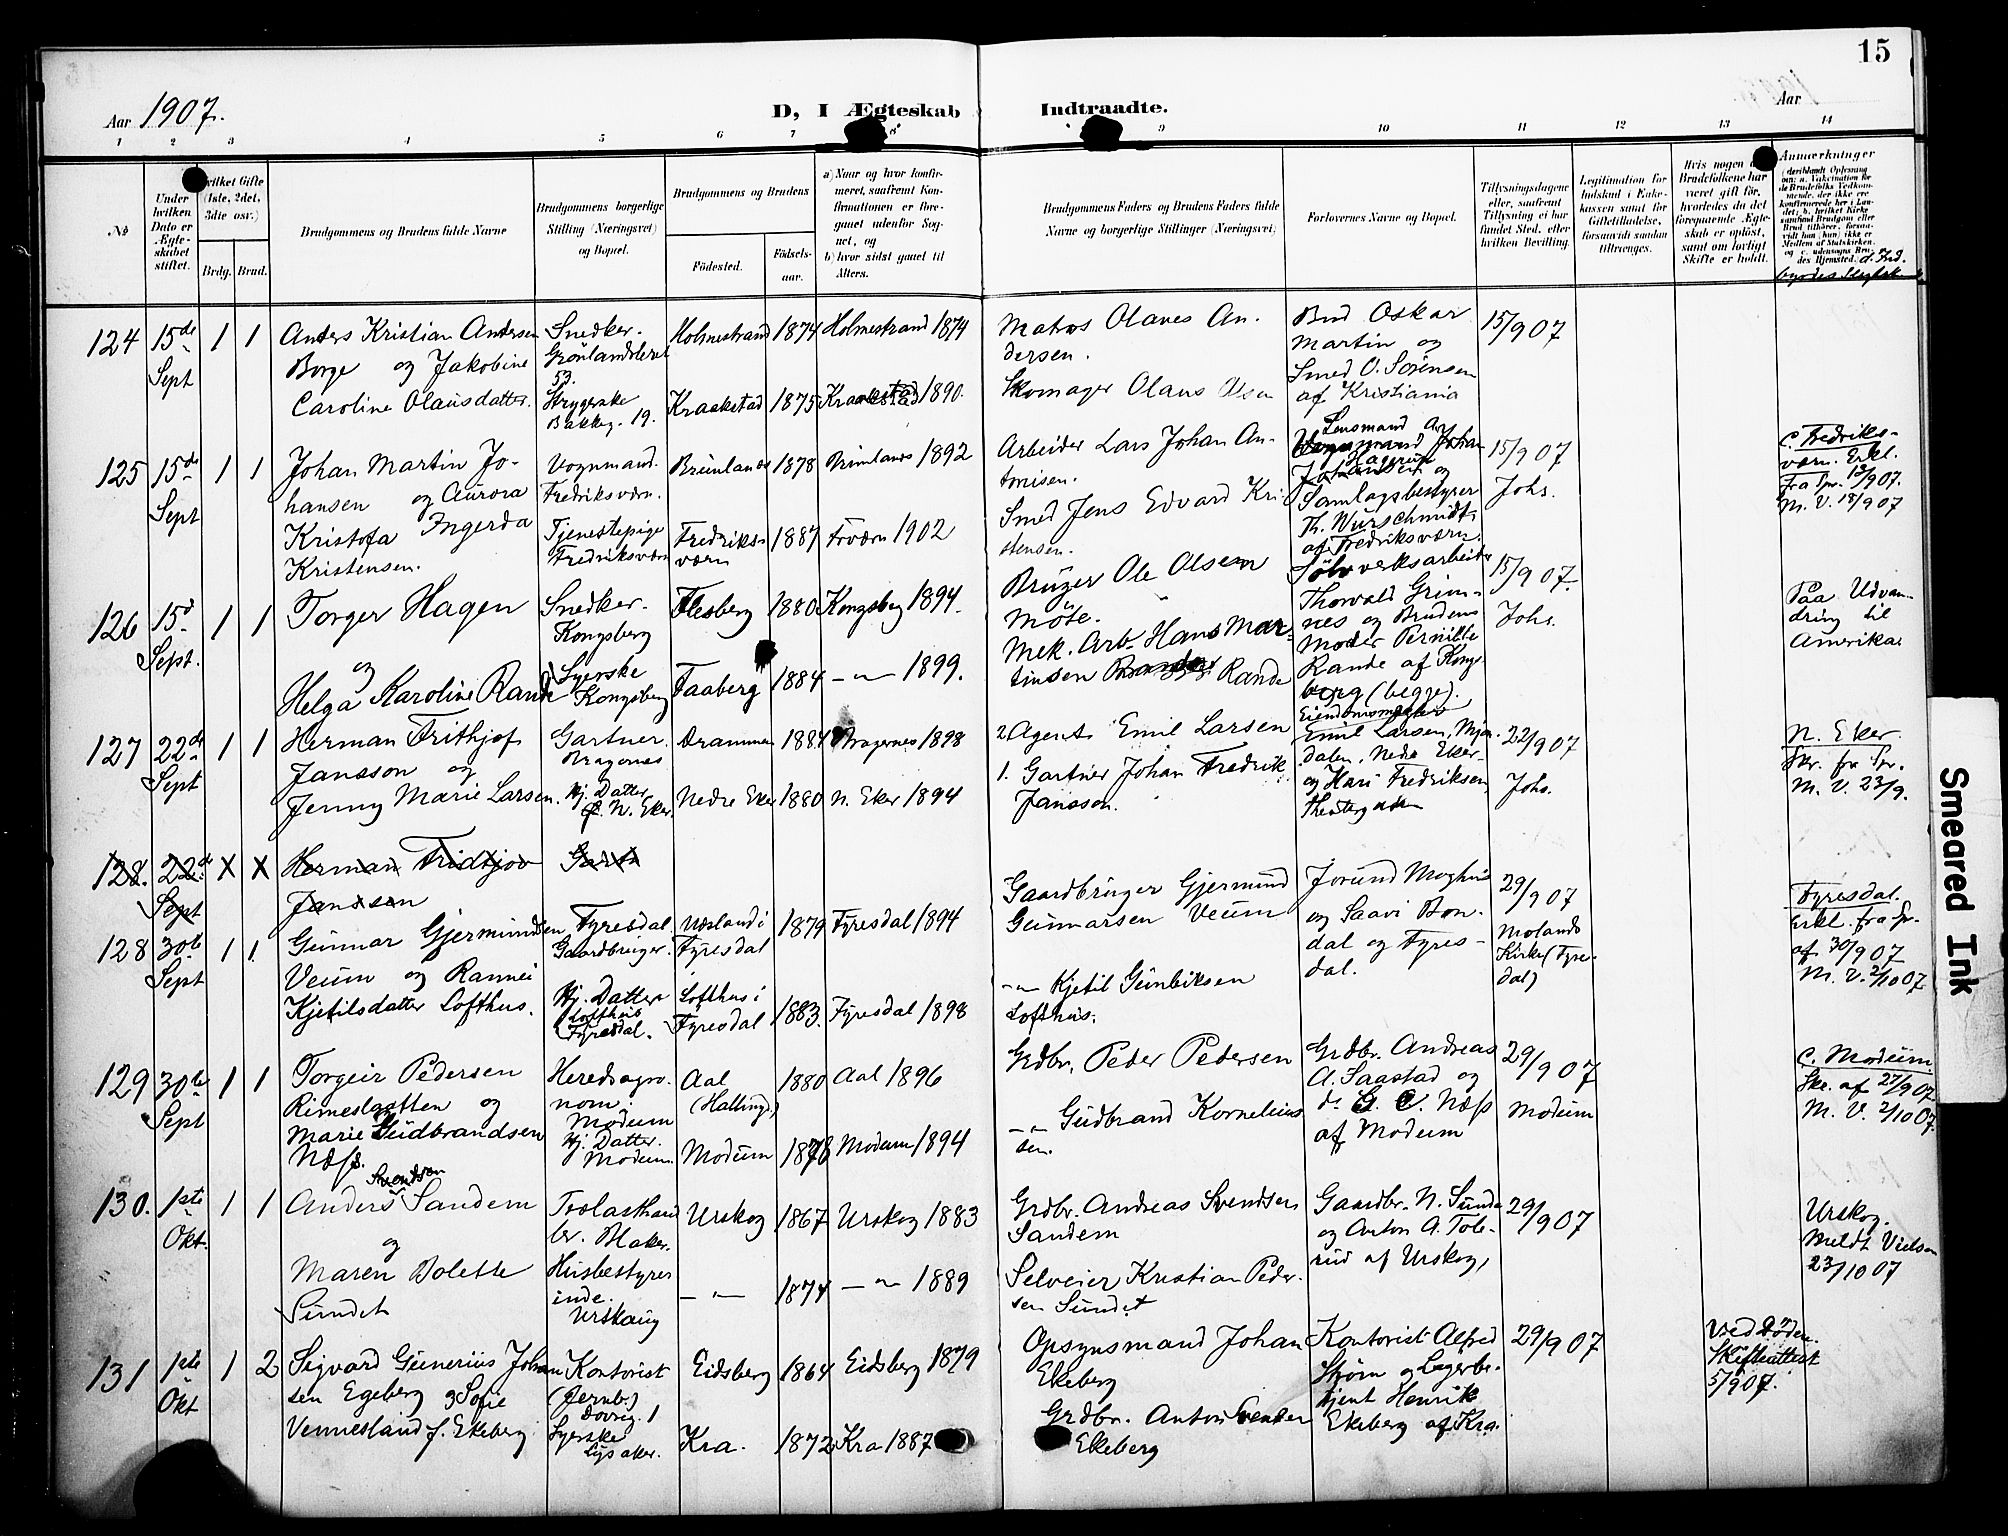 15
Aar 1907.
D, I Ægteskab Indtraadte.
Aar
1 2 3 4 5 6 7 8 9 10 11 12 13 14
No
Under hvilken Dato er Ægteskabet stiftet.
hvilket Gifte (1ste, 2det, 3die osv.)
Brdg. Brud.
Brudgommens og Brudens fulde Navne
Brudgommens borgerlige Stilling (Næringsvei) og Bopæl.
Brudgommens og Brudens
Fødested. Fødselsaar.
a) Naar og hvor konfirmeret, saafremt Konfirmationen er foregaaet udenfor Sognet, og
b) hvor sidst gaaet til Alters.
Brudgommens Faders og Brudens Faders fulde Navne og borgerlige Stillinger (Næringsvei)
Forlovernes Navne og Bopæl.
Tillysningsdagene eller, saafremt Tillysning ei har fundet Sted, efter hvilken Bevilling.
Legitimation for Indskud i Enkekassen samt for Giftetilladelse, forsaavidt saadan tiltrænges.
Hvis nogen af Brudefolkene har været gift før, hvorledes da det foregaaende Ægteskab er opløst, samt om lovligt Skifte er holdt.
Anmærkninger
124 15de Sept 1 1
Anders Kristian Andersen
Borge og Jakobine
Caroline Olausdatter.
Snedker.
Grønlandsleret
53.
Strygerske
Bakkeg. 19.
Holmestrand 1874 Holmestrand 1874
Kraakstad 1875 Kraakstad 1890.
Matros Olaves An-
dersen.
Skomager Olaus Olsen
Bud Oskar
Martin og
Smed O. Sörensen
af Kristiania
15/9 07
125 15de Sept 1 1
Johan Martin Jo-
hansen og Aurora
Kristofa Ingerda
Kristensen.
Vognmand.
Fredriksværn.
Tjenestepige
Fredriksværn
Brunlanes 1878 Brunlanes 1892
Fredriks-
værn 1887 Frværn 1902
Arbeider Lars Johan An-
tonisen.
Smed Jens Edvard Kri-
stensen.
Lensmand
Johan
og
Samlagsbestyrer
Th. Wurschmidt
af Fredriksværn.
15/9 07
Johs.
C. Fredriks-
værn. Erkl.
fra Spr. 17/9 07.
M. V. 18/9 07
126 15d Sept. 1 1
Torger Hagen
og
Helga Karoline Rande
Snedker.
Kongsberg
Syerske
Kongsberg
Flesberg 1880 Kongsberg 1894.
Faaberg 1884 —"— 1899.
Brüger Ole Olsen
Möte.
Mek. Arb. Hans Mar-
tinsen Rande
Sölvverksarbeider
Thorvald Grim-
nes og Brudens
Moder Pernille
Rande af Kongs-
berg (begge).
15/9 07.
Johs.
Paa Udvan-
dring til
Amerika.
127 22de Sept 1 1
Herman Frithjof
Jansson og
Jenny Marie Larsen.
Gartner.
Bragernes
Hj. Datter
N. Eker.
Drammen 1884 Bragernes 1898
Nedre Eker 1880 N. Eker 1894
2. Agent Emil Larsen
1. Gartner Johan Fredrik
Jansson.
Emil Larsen, Mjön-
dalen, Nedre Eker
og Hans Fredriksen
Theatergaden
22/9 07
Johs.
N. Eker.
Skr. fra Spr.
M. V. 23/9.
128. 22de Sept X X
Herman Fridtjov
Jansson
Gartn
128 30te Sept 1 1.
Gunnar Gjermundsen
Veum og Rannei
Kjetilsdatter Lofthus.
Fyresdal
Gaardbruger.
Hj. Datter
Lofthus
Fyresdal.
i
Fyresdal 1879 Fyresdal 1894
Lofthus i
Fyresdal 1883. Fyresdal 1898
Gaardbruger Gjermund
Gunnarsen Veum
—"— Kjetil Gunbiksen
Lofthus.
Jorund Moghus
og Saavi Bon-
dal og Fyres-
dal.
29/9 07
Molands
Kirke (Fyres-
dal)
Fyresdal.
Erkl. fra Spr.
af 30/9 07
M. V. 2/10 07
129 30te Sept 1 1
Torgeir Pedersen
Rimeslaatten og
Marie Gudbrandsen
Næss.
Heredsagro-
nom.
Modum
Hj. Datter.
Modum.
Aal
(Halling.) 1880 Aal 1896
Modum 1878 Modum 1894
Grdbr. Peder Pedersen
—"— Gudbrand Kornelius-
sen.
Grdbr. Andreas
A. Saastad og
do. G. C. Næss
af Modum
29/9 07
Modum
C. Modum.
Skr. af 27/9 07
M. V. 2/10 07.
130. 1ste Okt. 1 1
Svendsen
Anders Sandem
og
Maren Bolette
Sundet
Trælasthand-
ler. Blaker.
Husbestyrer
inde.
Urskaug
Urskog 1867 Urskog 1883
—"— 1874 —"— 1889
Grdbr. Andreas Svendsen
Sandem
Selveier Kristian Peder-
sen Sundet
Gaardbr. N. Sunde
og Anton A. Tole-
rud af Urskog,
29/9 07
Urskog.
Meldt Vielsen
23/10 07
131 1ste Okt 1 2
Sigvard Gunerius Johan-
sen Egeberg og Sofie
Vennesland f. Ekeberg
Kontorist
(Jernb.)
Dovreg. 1
Syerske
Lysaker.
Eidsberg 1864 Eidsberg 1879
Kra. 1872 Kra 1887
Opsynsmand Johan
Ekeberg
Grdbr. Anton Svendsen
Ekeberg
Kontorist Alfred
Strøm og Lagerbe-
tjent Henrik
Ekeberg af Kra.
29/9 07
Ved Døden.
Skifteattest
5/9 07.
Smeared Ink